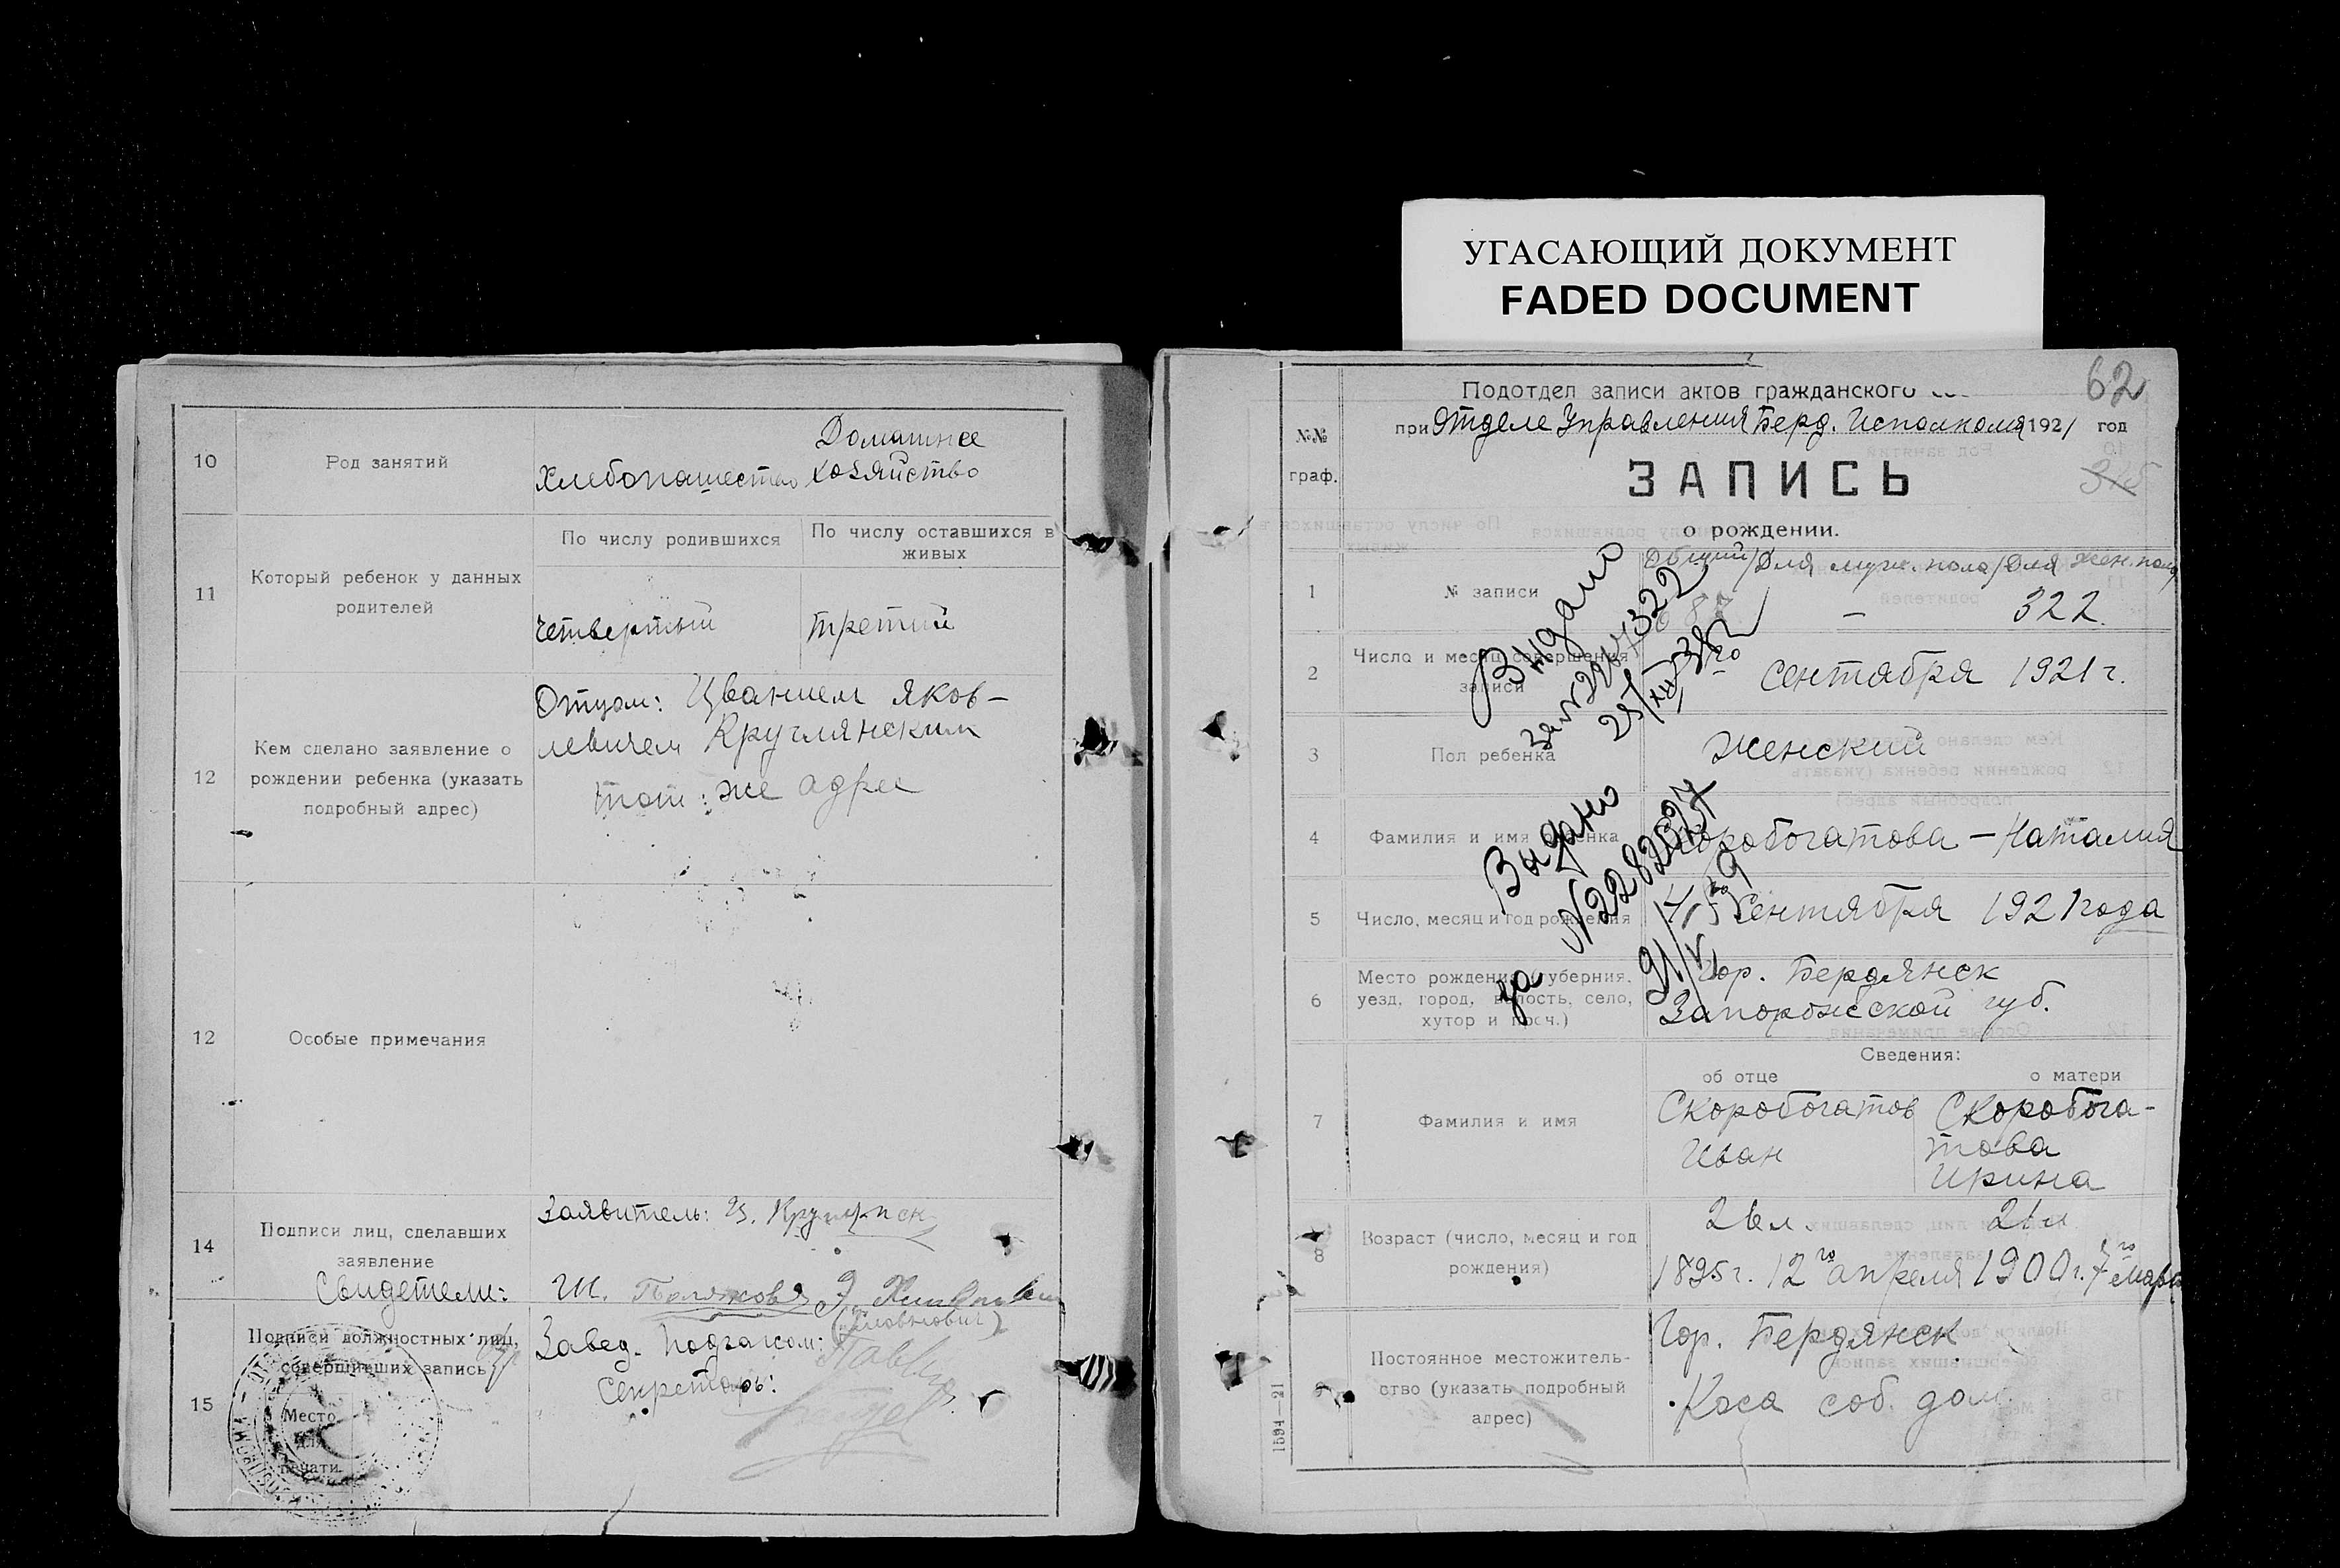 УГАСАЮЩИЙ ДОКУМЕНТ
FADED DOCUMENT
10
Род занятий
Хлебопашество
Домашнее
хозяйство
11
Который ребенок у данных
родителей
По числу родившихся
По числу оставшихся в
живых
четвертый
третий
12
Кем сделано заявление о
рождении ребенка (указать
подробный адрес)
Отцом: Цванием Яков-
левичем Круглянским
тот же адрес
12
Особые примечания
14
Подписи лиц, сделавших
заявление
Заявитель:
Свидетели:
15
Подписи должностных лиц,
совершивших запись
Место
для
печати.
Завед. Подзагсом:
Секретарь:
62
Подотдел записи актов гражданского
№№
граф.
при Отделе Управления Берд. Исполкома 1921 год
325
ЗАПИСЬ
о рождении.
1
№ записи
Общий/Для муж. пола/Для жен. пола
– 322.
2
Число и месяц совершения
записи
сентября 1921 г.
3
Пол ребенка
Женский
4
Фамилия и имя ребенка
Скоробогатова – Наталия
5
Число, месяц и год рождения
Сентября 1921 года
6
Место рождения (губерния,
уезд, город, волость, село,
хутор и проч.)
Гор. Бердянск
Запорожской губ.
Выдано
Выдано
за №2282527
Сведения:
об отце
о матери
7
Фамилия и имя
Скоробогатов
Иван
Скоробога-
това
Ирина
8
Возраст (число, месяц и год
рождения)
26 л.
21 л
1895 г. 12го апреля
1900 г. 7го марта
9
Постоянное местожитель-
ство (указать подробный
адрес)
Гор. Бердянск
Коса соб. дом
1594—21